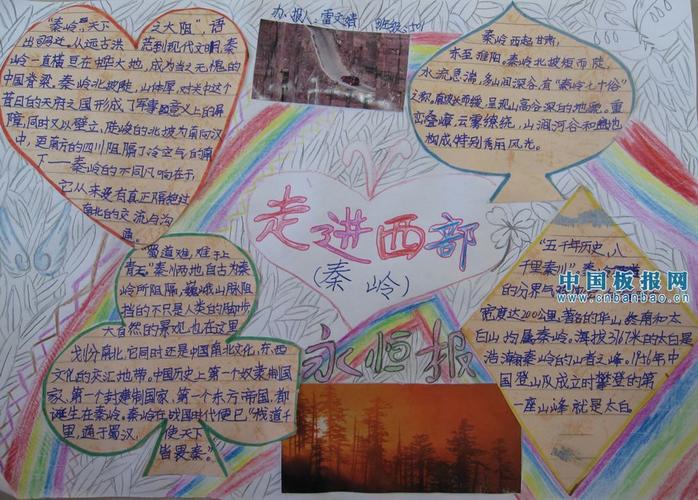 办报人:雷文婧 班级:
"秦岭,天下之大阻",语
出司马迁,从远古洪荒到现代文明,秦
岭一直横亘在中华大地,成为当之无愧的
中国脊梁。秦岭北坡陡,山体厚,对关中这个
昔日的天府之国形成了军事意义上的屏
障,同时又以壁立,陡峻的北坡为面向汉
中,更广大的四川阻隔了冷空气的南
下——秦岭的不同凡响在于,
它从来没有真正隔绝过
南北的交流与沟
通。
秦岭西起甘肃,
东至淮阳。秦岭北坡短而陡,
水流急湍,多山涧深谷,有"秦岭七十峪"
之称,南坡长而缓,呈现山高谷深的地貌。重
峦叠嶂,云雾缭绕,山涧河谷和盆地
构成特别秀丽风光。
走进西部
(秦岭)
"蜀道难,难于上
青天"秦川两地,自古为秦
岭所阻隔,巍峨山脉阻
挡的不只是人类的脚步,
大自然的景观也在这里
划分南北,它同时还是中国南北文化,东西
文化的交汇地带。中国历史上第一个奴隶制国
家、第一个封建制国家、第一个东方帝国,都
诞生在秦岭。秦岭在战国时代便已"栈道千
里,通于蜀汉,使天下
皆畏秦。"
"五千年历史,八
百里秦川"
的分界
宽度达200公里,著名的华山,终南和太
白山均属秦岭。海拔3767米的太白是
浩瀚秦岭的山脊之峰。1956年中
国登山队成立时攀登的第
一座山峰就是太白。
永恒报
中国板报网
www.cnbanbao.cn